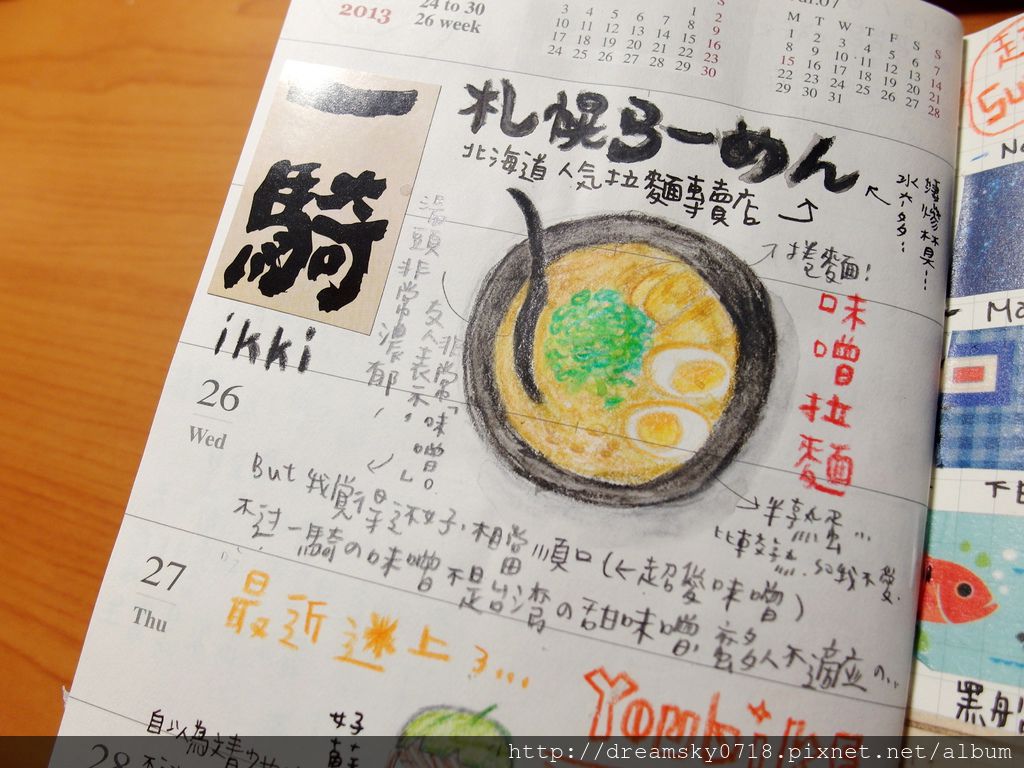 2013
24 to 30
26 week
S
1 2
3 4 5 6 7 8 9
10 11 12 13 14 15 16
17 18 19 20 21 22 23
24 25 26 27 28 29 30
07
M T W T F S S
1 2 3 4 5 6 7
8 9 10 11 12 13 14
15 16 17 18 19 20 21
22 23 24 25 26 27 28
29 30 31
一騎
ikki
札幌らーめん
北海道人気拉麵專賣店
捲麵!
味噌拉麵
湯頭非常濃郁,
友人表示,
非常「味噌」。
半熟蛋...
比較熟
26
Wed
But 我覺得還好,相當順口(←超愛味噌)
不過一騎の味噌不是台灣の甜味噌,蠻多人不適應の...
27
Thu
最近迷上了...
28
自以為
好
黑船
http://dreamsky0718.pixnet.net/album